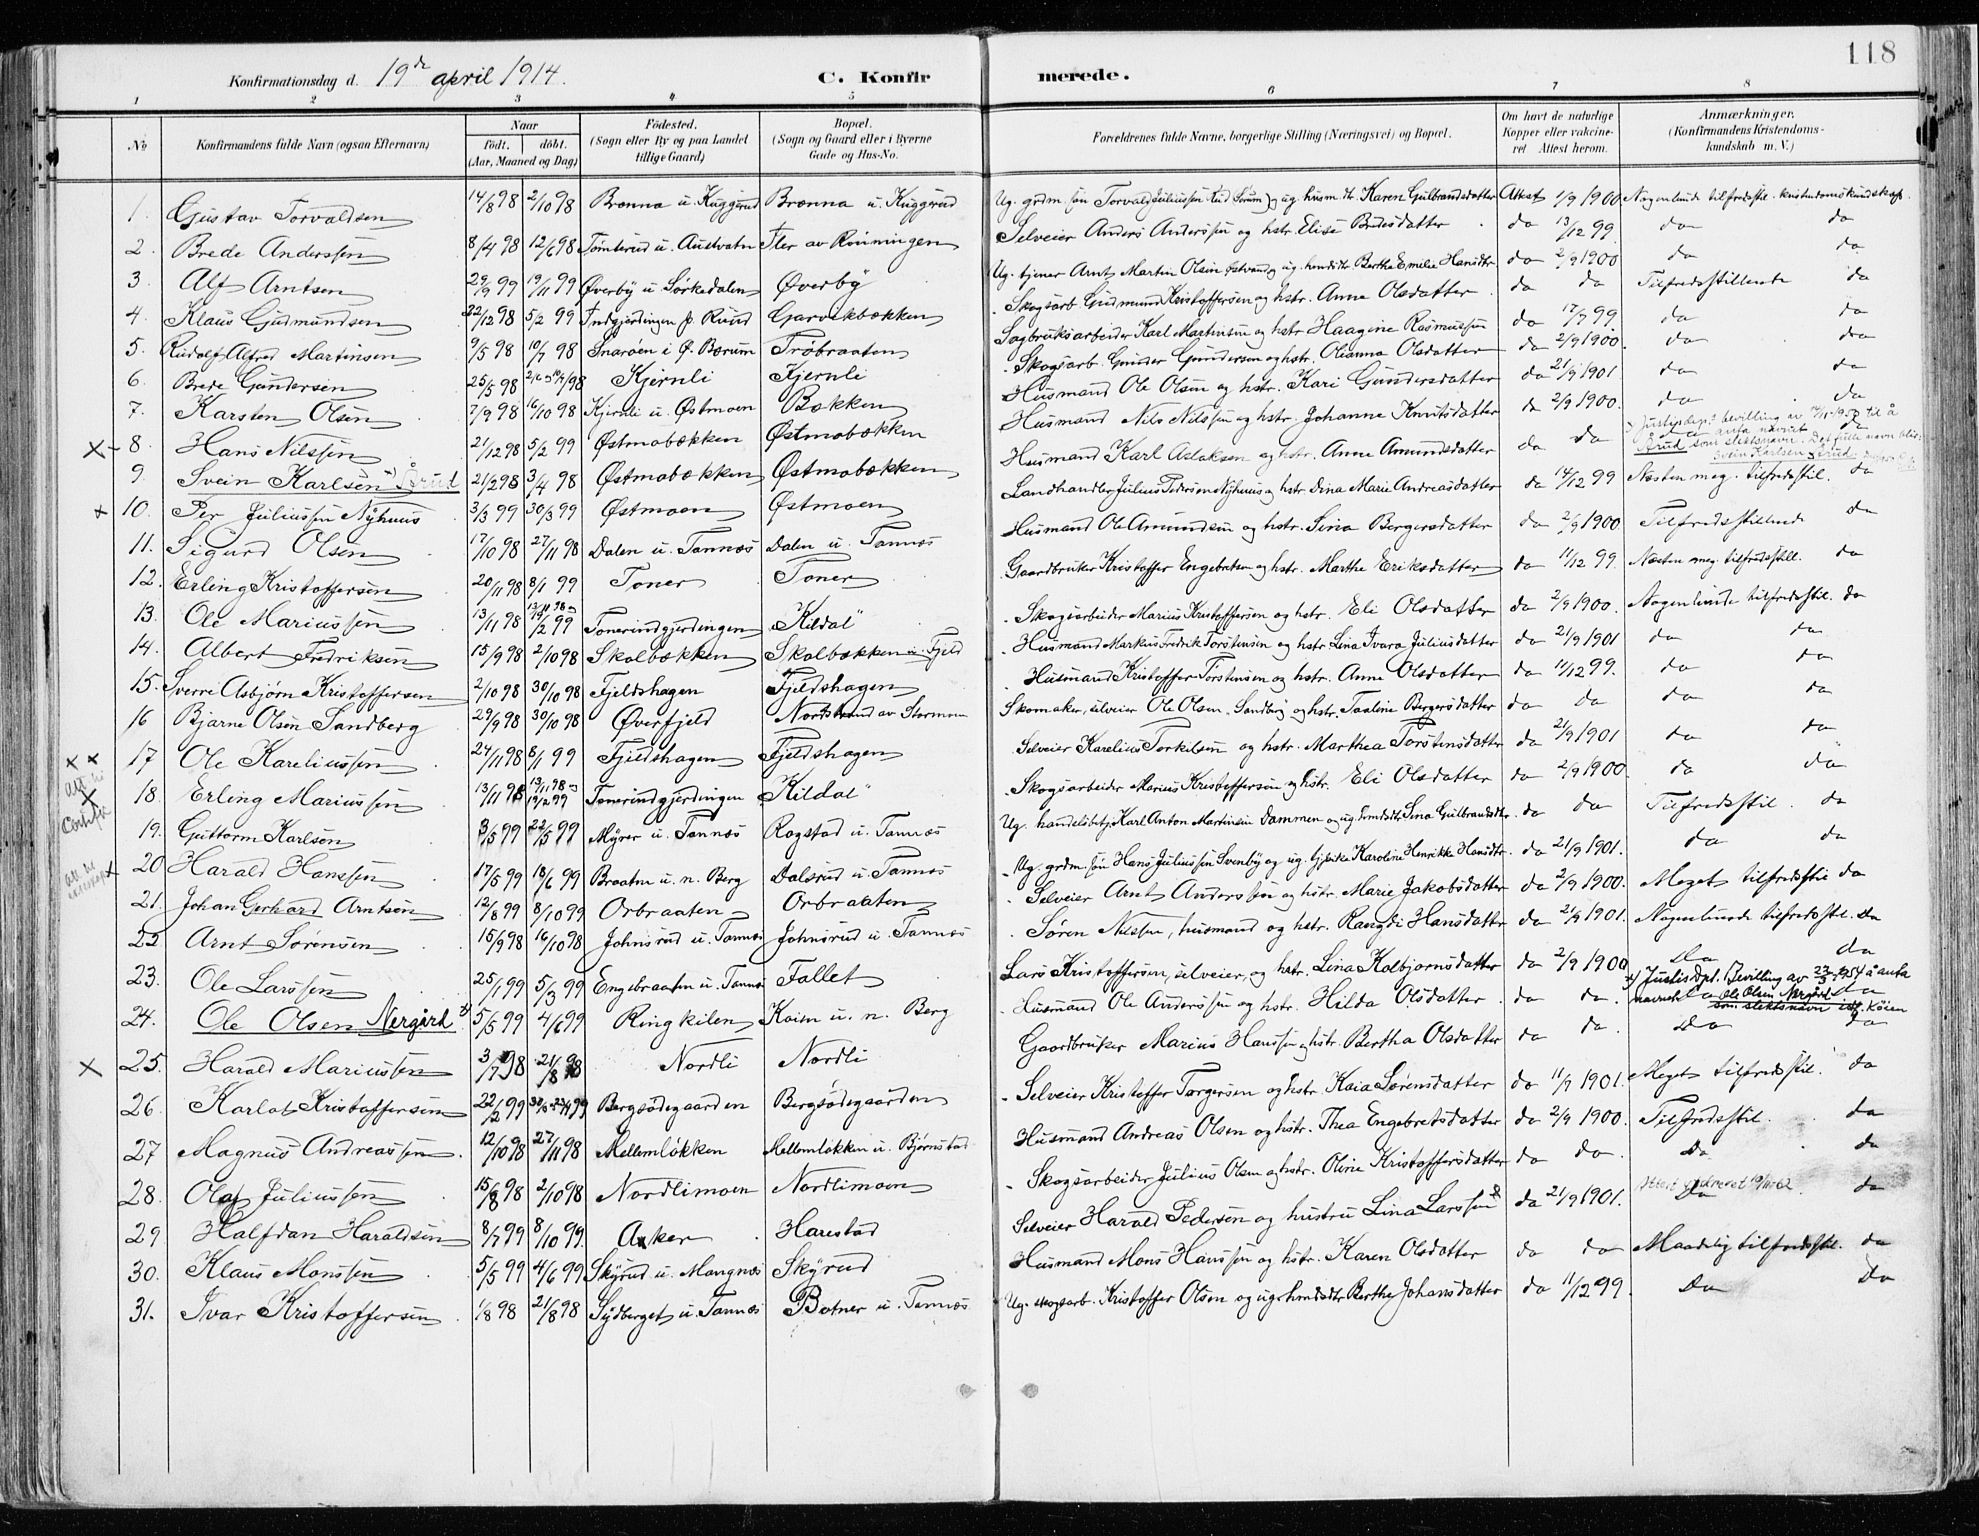 118
Konfirmationsdag d. 19de april 1914.
C. Konfirmerede.
1 2 3 4 5 6 7 8
No Konfirmandens fulde Navn (ogsaa Efternavn) Naar født. døbt. (Aar, Maaned og Dag) Fødested. (Sogn eller By og paa Landet tillige Gaard) Bopæl. (Sogn og Gaard eller i Byerne Gade og Hus-No. Forældrenes fulde Navne, borgerlige Stilling (Næringsvei) og Bopæl. Om havt de naturlige Kopper eller vaccineret Attest herom. Anmærkninger. (Konfirmandens Kristendomskundskab m. V.)
1. Gustav Torvaldsen 14/8 98 2/10 98 Brænna u. Kuggerud Brænna u. Kuggerud Ug. grdm. søn Torvald Juliussen Rud (Sørum) og ug. husm. dtr Karen Gulbrandsdatter Attest 1/9 1900 Nogenlunde tilfredsstil. kristendomskundskap
2. Brede Anderssen 8/4 98 12/6 98 Tomterud u. Austvatn Fler av Rønningen Selveier Anders Anderssen og hstr. Elise Bredesdatter do 13/12 99 do do
3. Alf Arntsen 29/9 99 19/11 99 Øverby u. Sørkedalen Øverby Ug. tjener Arnt Martin Olsen Østvand og ug. husmdtr Berthe Emilie Hansdtr do 2/9 1900 do do
4. Klaus Gudmundsen 22/12 98 5/2 99 Indgjerdingen p. Ruud Garvikbækken Skogsarb. Gudmund Kristoffersen og hstr. Anne Olsdatter do do Tilfredsstillende do
5. Rudolf Alfred Martinsen 9/5 98 10/7 98 Snarøen i Ø. Bærum Trøbraaten Sagbruksarbeider Karl Martinsen og hstr Haagine Rasmussen do 17/9 99 do do
6. Brede Gundersen 25/5 98 Kjernli Kjernli Skogsarb. Gunder Gundersen og hstr. Olianna Olsdatter do 2/9 1900. do do
7. Karsten Olsen 7/9 98 16/10 98 Kjernli u. Østmoen Bækken Husmand Ole Olsen og hstr. Kari Gundersdatter do 21/9 1901 do do
8. Hans Nilssen 21/12 98 5/2 99 Østmobækken Østmobækken Husmand Nils Nilssen og hstr. Johanne Knutsdatter do 2/9 1900. do do
9. Svein Karlsen Årud 21/2 98 3/4 98 Østmobækken Østmobækken Husmand Karl Aslaksen og hstr. Anne Amundsdatter do do Justisdep.s bevilling av 1957 til å anta navnet Årud som slektsnavn. Det fulle navn blir: Svein Karlsen Årud
10. Per Juliussen Nyhuus 3/3 99 30/3 99 Østmoen Østmoen Landhandler Julius Pedersen Nyhuus og hstr Dina Marie Andreasdatter do 14/12 99 Næsten meg. tilfredsstil. do
11. Sigurd Olsen 17/10 98 27/11 98 Dalen u. Tannæs Dalen u. Tannæs Husmand Ole Amundsen og hstr. Lina Bergersdatter do 2/9 1900 Tilfredsstillende do
12. Erling Kristoffersen 20/11 98 8/1 99 Toner Toner Gaardbruker Kristoffer Engebretsen og hstr. Marthe Eriksdatter do 11/12 99. Næsten meg. tilfredsstill. do
13. Ole Mariussen 13/11 98 13/11 98 19/2 99 Tonerindgjerdingen "Kildal" Skogsarbeider Marius Kristoffersen og hstr. Eli Olsdatter do 2/9 1900. Nogenlunde tilfredsstil. do
14. Albert Fredriksen 15/9 98 2/10 98 Skolbækken Skolbækken u. Fjeld Husmand Markus Fredrik Torstensen og hstr Lina Ivara Juliusdatter do 21/9 1901 do do
15. Sverre Asbjørn Kristoffersen 2/10 98 30/10 98 Fjeldshagen Fjeldshagen Husmand Kristoffer Torstensen og hstr. Anne Olsdatter do 11/12 99. do do
16 Bjarne Olsen Sandberg 29/9 98 30/10 98 Øverfjeld Nordstrand av Stormoen Skomaker, selveier Ole Olsen Sandberg og hstr. Taaline Bergersdatter do do do do
17. Ole Kareliussen 24/11 98 8/1 99 Fjeldshagen Fjeldshagen Selveier Karelius Torkilsen og hstr. Marthea Torstensdatter do 21/9 1901 do do
18. Erling Mariussen 13/11 98 13/11 98 19/2 99 Tonerindgjerdingen "Kildal" Skogsarbeider Marius Kristoffersen og hstr. Eli Olsdatter do 2/9 1900. do do
19. Guttorm Karlsen 3/5 99 22/5 99 Myrer u. Tannæs Rogstad u. Tannæs Ug. handelsbetj. Karl Anton Martinsen Dammen og ug. husmdtr Lina Gulbrandsdtr. do do Tilfredsstil. do
20 Harald Hanssen 17/5 99 18/6 99 Braaten u. n. Berg Dalsrud u. Tannæs Ug. grdm. søn Hans Juliussen Svenby og ug. tjpike Karoline Henrikke Hansdtr. do 21/9 1901. do do
21. Johan Gerhard Arntsen 12/8 99 8/10 99 Orbraaten Orbraaten Selveier Arnt Anderssen og hstr. Marie Jakobsdatter do 2/9 1900. Meget tilfredsstil do
22 Arnt Sørensen 15/9 98 16/10 98 Johnsrud u. Tannæs Johnsrud u. Tannæs Søren Nilssen, husmand og hstr. Rangdi Hansdatter do 21/9 1901. Nogenlunde tilfredsstil. do
23. Ole Larssen 25/1 99 5/3 99 Engebraaten u. Tannæs Fallet Lars Kristoffersen, selveier, og hstr. Lina Kolbjørnsdatter do 2/9 1900 do do
24. Ole Olsen Nergård 5/5 99 4/6 99 Ringkilen Koien u. n. Berg Husmand Ole Anderssen og hstr. Hilda Olsdatter. do do. x) Justisdpt. bevilling av 23/3 1954 å anta navnet Ole Olsen Nergård som slektsnavn istf. Køien
25. Harald Mariussen 3/7 98 21/8 98 Nordli Nordli Gaardbruker Marius Hanssen og hstr. Bertha Olsdatter do do. do do
26. Karlot Kristoffersen 22/2 99 Bergsødegaarden Bergsødegaarden Selveier Kristoffer Torgersen og hstr. Kaia Sørensdatter do 11/9 1901. Meget tilfredsstil. do
27 Magnus Andreassen. 12/10 98 27/11 98 Mellemløkken Mellemløkken u. Bjørnstad Husmand Andreas Olsen og hstr. Thea Engebretsdatter do 2/9 1900. Tilfredsstil. do
28. Olaf Juliussen 15/8 98 2/10 98 Nordlimoen Nordlimoen Skogsarbeider Julius Olsen og hstr. Oline Kristoffersdatter do do. do do
29 Halfdan Haraldsen 8/7 99 8/10 99. Asker Harestad Selveier Harald Pedersen og hustru Lina Larssen do 21/9 1901. do do
30. Klaus Monssen 5/5 99 4/6 99 Skyrud u. Mangnæs Skyrud Husmand Mons Hanssen og hstr. Karen Olsdatter do do Maadelig tilfredsstil. do
31. Ivar Kristoffersen 1/8 98 21/8 98 Sydberget u. Tannæs Botner u. Tannæs Ug. skogsarb. Kristoffer Olsen og ug. husmdtr Berthe Johansdatter do 11/12 99. do do